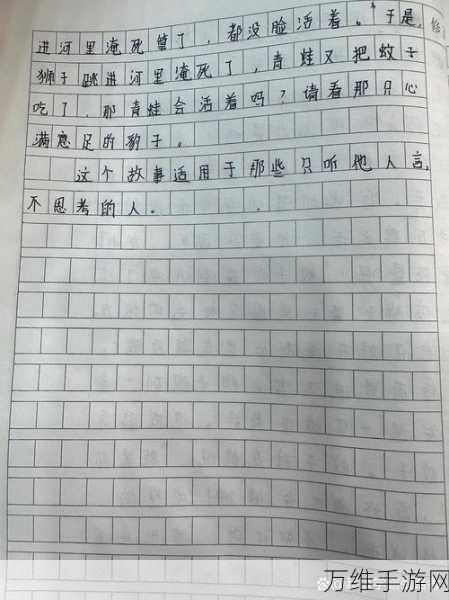 进河里淹死算了，都没脸活着。"于是，
狮子跳进河里淹死了，青蛙又把蚊子
吃了，那青蛙会活着吗？请看那只心
满意足的豹子。
这个故事适用于那些只听他人言，
不思考的人。
万维手游网